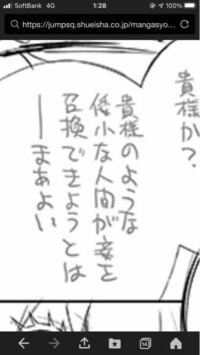 SoftBank 4G
1:28
100%
https://jumpsq.shueisha.co.jp/mangasyo...
貴様か?
貴様のような
倭小な人間が妾を
召換できようとは
ーまあよい
14